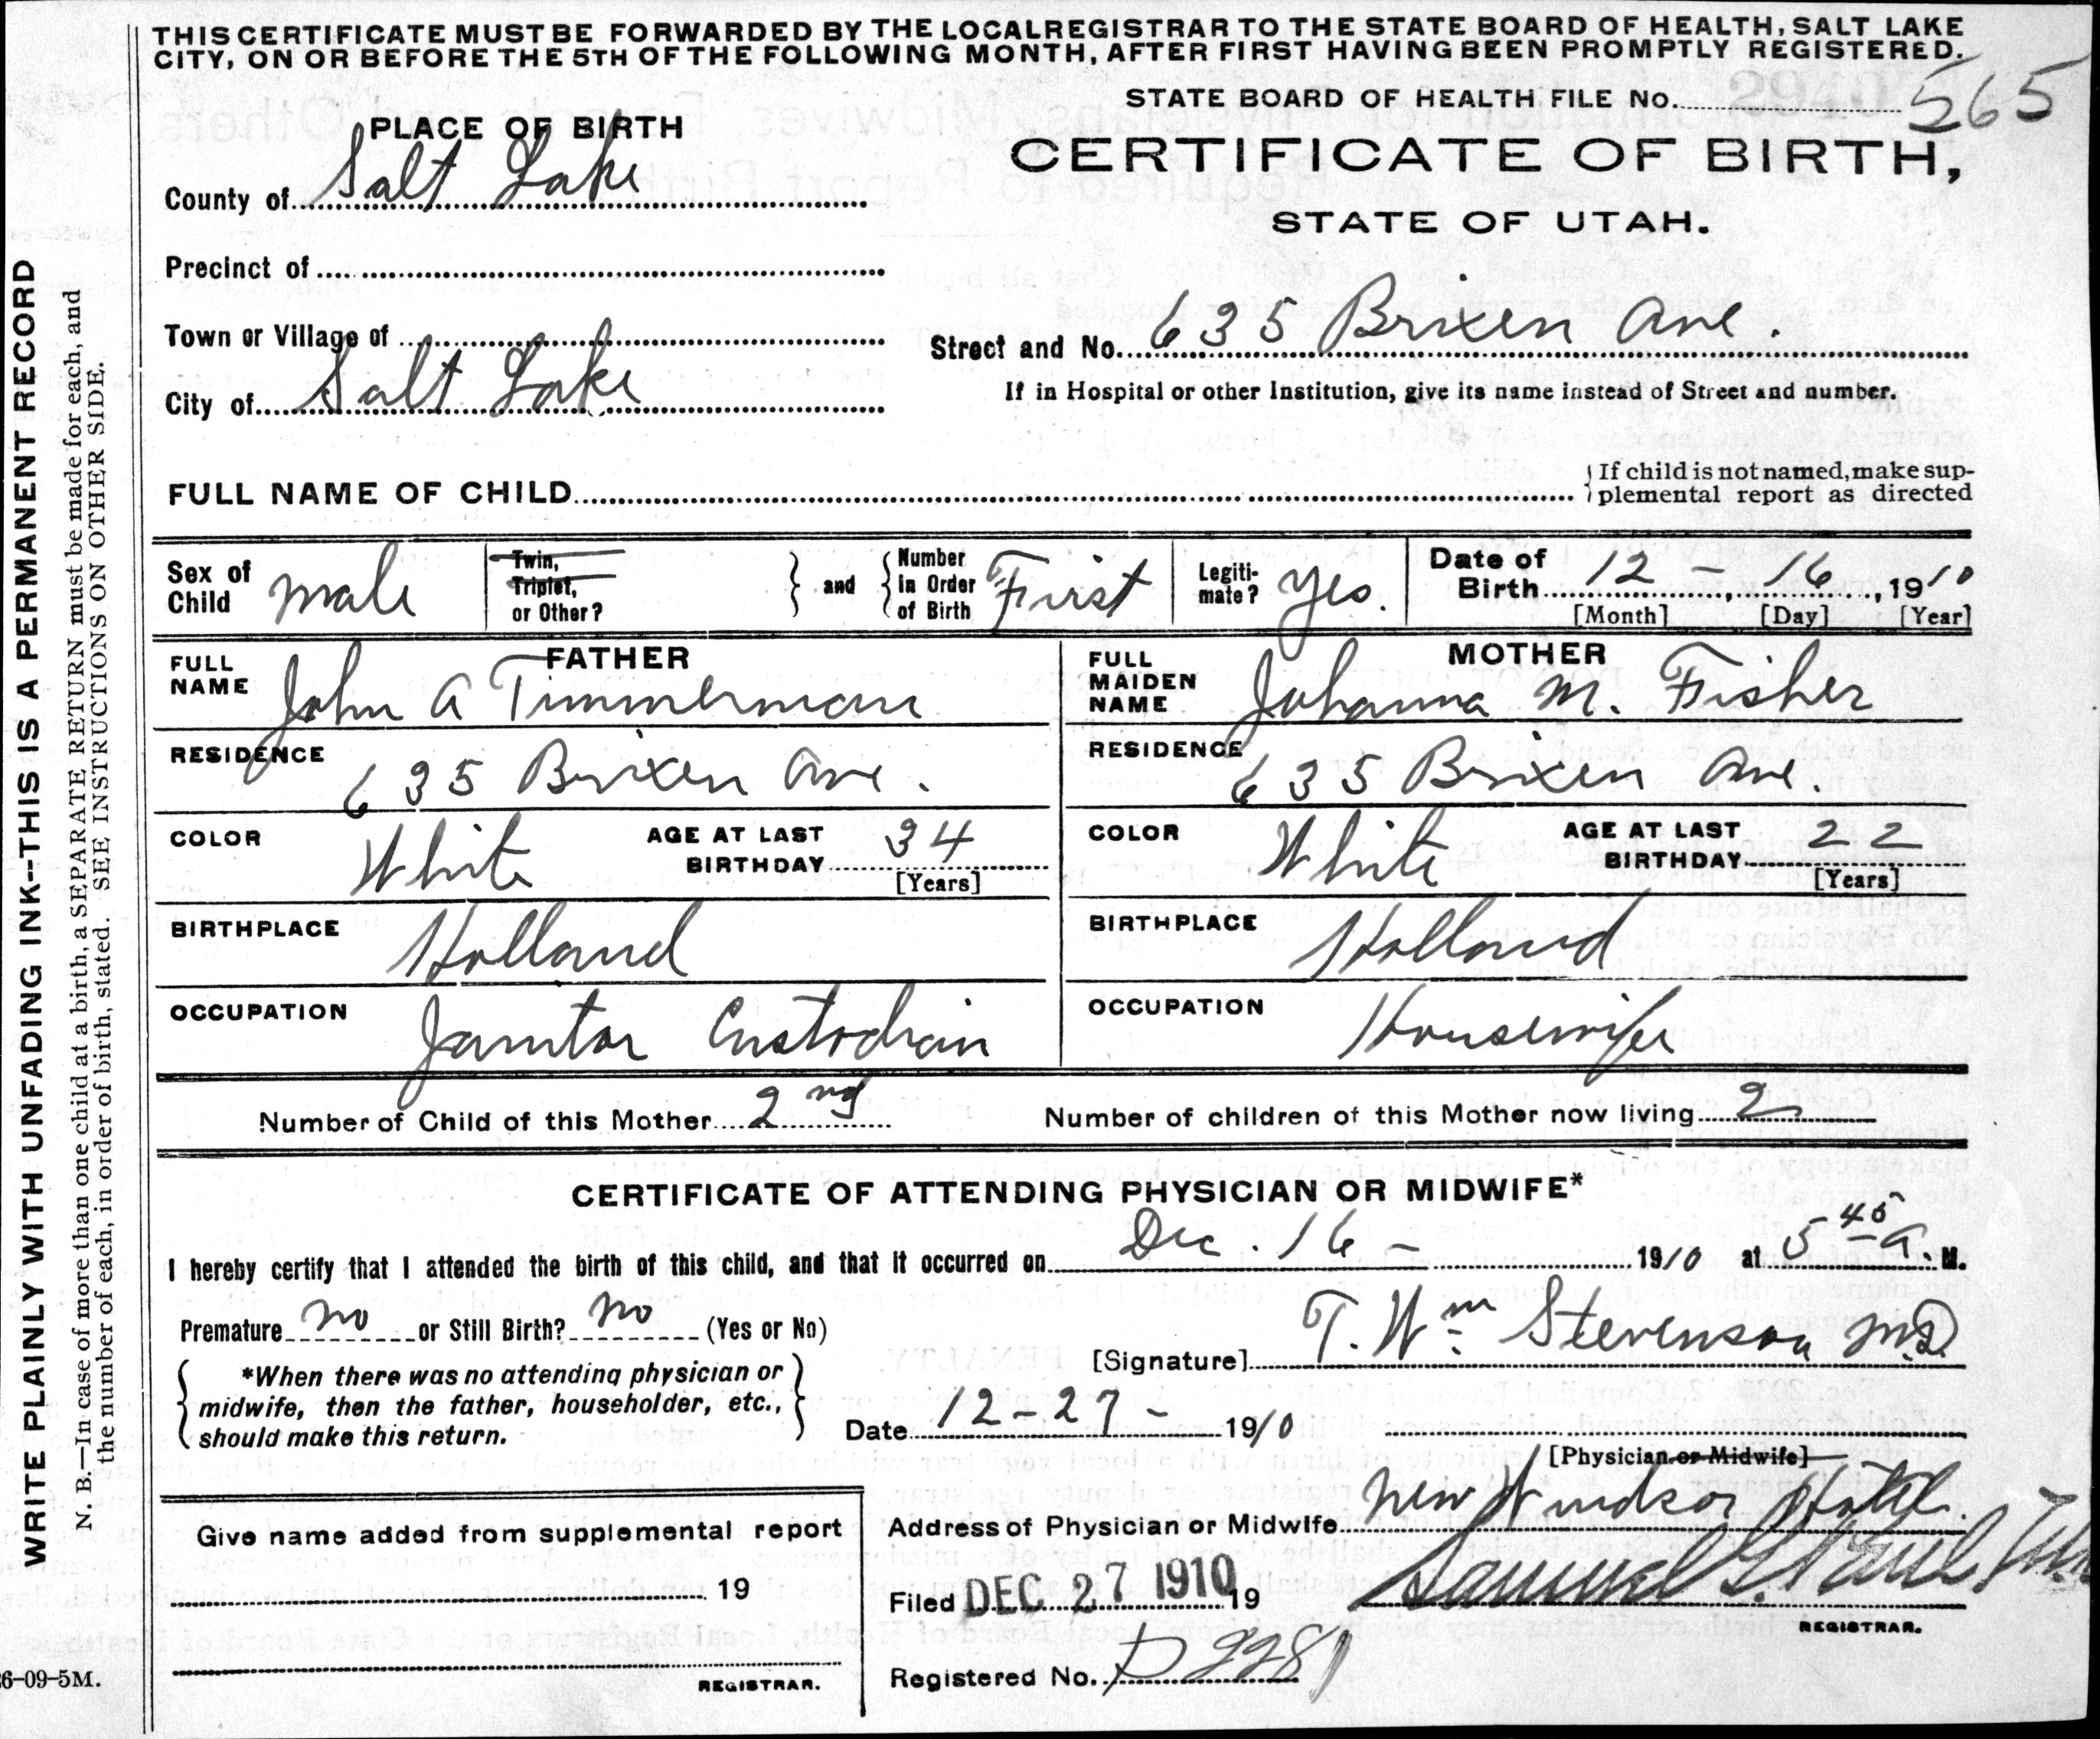 THIS CERTIFICATE MUST BE FORWARDED BY THE LOCAL REGISTRAR TO THE STATE BOARD OF HEALTH, SALT LAKE
CITY, ON OR BEFORE THE 5TH OF THE FOLLOWING MONTH, AFTER FIRST HAVING BEEN PROMPTLY REGISTERED.
STATE BOARD OF HEALTH FILE No. 565
PLACE OF BIRTH
CERTIFICATE OF BIRTH,
County of Salt Lake
STATE OF UTAH.
Precinct of
Town or Village of
Street and No. 635 Brixen Ave.
City of Salt Lake
If in Hospital or other Institution, give its name instead of Street and number.
FULL NAME OF CHILD
If child is not named, make sup-
plemental report as directed
Sex of Child male
Twin, Triplet, or Other?
and
Number in Order of Birth First
Legiti-mate? yes.
Date of Birth 12 - 16, 1910
[Month] [Day] [Year]
FATHER
FULL NAME John A Timmerman
RESIDENCE 635 Brixen Ave.
COLOR White AGE AT LAST BIRTHDAY 34 [Years]
BIRTHPLACE Holland
OCCUPATION Janitor Custodian
MOTHER
FULL MAIDEN NAME Johanna M. Fisher
RESIDENCE 635 Brixen Ave.
COLOR White AGE AT LAST BIRTHDAY 22 [Years]
BIRTHPLACE Holland
OCCUPATION Housewife
Number of Child of this Mother 2nd Number of children of this Mother now living 2
CERTIFICATE OF ATTENDING PHYSICIAN OR MIDWIFE*
I hereby certify that I attended the birth of this child, and that it occurred on Dec. 16 - 1910 at 5 45 a. M.
Premature no or Still Birth? no (Yes or No)
[Signature] T. Wm Stevenson M.D.
*When there was no attending physician or
midwife, then the father, householder, etc.,
should make this return.
Date 12-27- 1910
[Physician or Midwife]
Address of Physician or Midwife New Windsor Hotel.
Give name added from supplemental report
19
REGISTRAR.
Filed DEC 27 1910 19 Samuel G. Paul
REGISTRAR.
Registered No. D 2281
WRITE PLAINLY WITH UNFADING INK--THIS IS A PERMANENT RECORD
N. B.—In case of more than one child at a birth, a SEPARATE RETURN must be made for each, and
the number of each, in order of birth, stated. SEE INSTRUCTIONS ON OTHER SIDE.
6-09-5M.